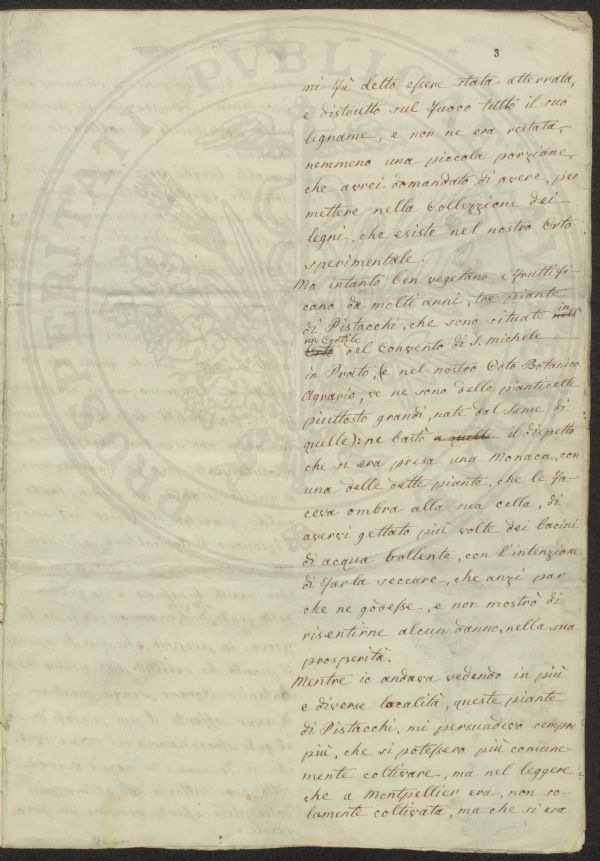 3
mi fù detto essere stata atterrata,
e distrutto sul fuoco tutto il suo
legname, e non ne era restata,
nemmeno una piccola porzione,
che avrei domandato di avere, per
mettere nella Collezzione dei
legni, che esiste nel nostro Orto
sperimentale.
Ma intanto ben vegetano e fruttifi-
cano da molti anni, tre piante
di Pistacchi, che sono situate in
un Cortile del Convento di S. Michele
in Prato, (e nel nostro Orto Botanico
Agrario, ve ne sono delle pianticelle
piuttosto grandi, nate dal seme di
quelle): ne bastò a quelle il dispetto
che si era presa una Monaca, con
una delle dette piante, che le fa-
ceva ombra alla sua cella, di
avervi gettato più volte dei bacini
di acqua bollente, con l'intenzione
di farla seccare, che anzi par
che ne godesse, e non mostrò di
risentirne alcun danno, nella sua
prosperità.
Mentre io andava vedendo in più
e diverse località, queste piante
di Pistacchi, mi persuadevo sempre
più, che si potessero più comune-
mente coltivare, ma nel leggere
che a Montpellier era, non so-
lamente coltivata, ma che si era
PROSPERITATI PUBLICAE